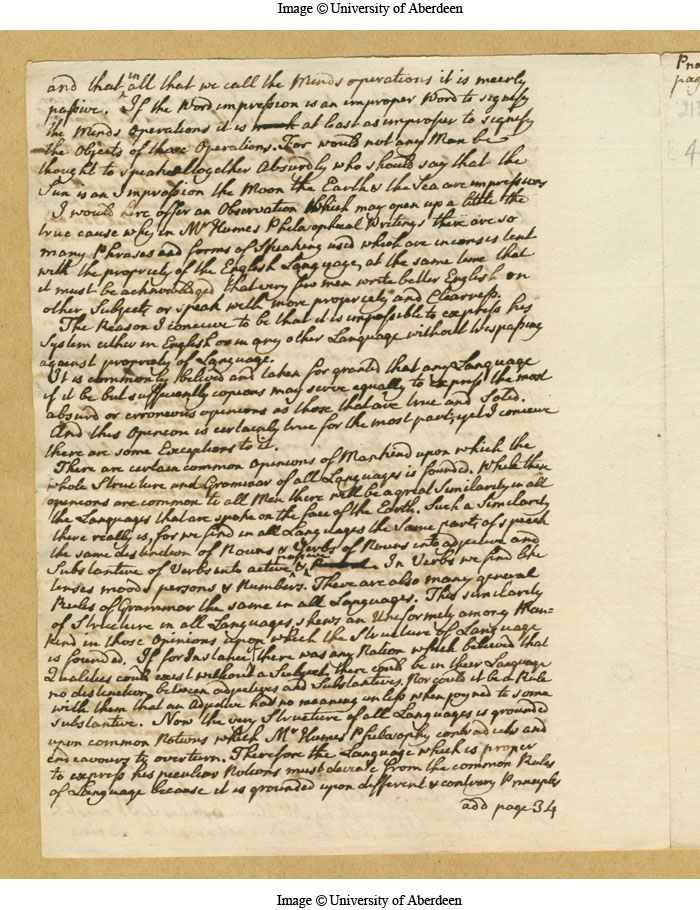 Image © University of Aberdeen
and that in all that we call the Minds operations it is meerly
passive. If the Word impression is an improper Word to signify
the Minds Operations it is at least as improper to signify
the Objects of those Operations. For would not any Man be
thought to speak altogether Absurdly who should say that the
Sun is an Impression the Moon the Earth & the Sea are impressions
I would here offer an Observation Which may open up a little the
true cause why in Mr Humes Philosophical Writings there are so
many Phrases and forms of Speaking used which are inconsistent
with the propriety of the English Language, at the same time that
it must be acknowledged that very few men write better English on
other Subjects or speak with more propriety and Clearness.
The Reason I conceive to be that it is impossible to express his
System either in English or in any other Language without trespassing
against propriety of Language.
It is commonly belived and taken for granted that any Language
if it be but sufficiently copious may serve equally to express the most
absurd or erroneous opinions as those that are true and Solid.
And this Opinion is certainly true for the most part, yet I conceive
there are some Exceptions to it.
There are certain common Opinions of Mankind upon which the
whole Structure and Grammar of all Languages is founded. While these
opinions are common to all Men there will be a great Similarity in all
the Languages that are spoke on the face of the Earth. Such a Similarity
there really is, for we find in all Languages the Same parts of speech
the same distinction of Nouns & Verbs of Nouns into adjective and
Substantive of Verbs into active & passive. In Verbs we find like
tenses moods persons & Numbers. There are also many general
Rules of Grammar the same in all Languages. This similarity
of Structure in all Languages shews an Uniformity among Man=
kind in those Opinions upon which the Structure of Language
is founded. If for Instance there was any Nation which believed that
Qualities could exist without a Subject, there could be in their Language
no distinction between adjectives and Substantives, Nor could it be a Rule
with them that an Adjective had no meaning unless when joyned to some
substantive. Now the very Structure of all Languages is grounded
upon common Notions which Mr Humes Philosophy contradicts and
endeavours to overturn. Therefore the Language which is proper
to express his peculiar Notions must deviate from the common Rules
of Language because it is grounded upon different & contrary Principles
add page 34
pag
4
Image © University of Aberdeen